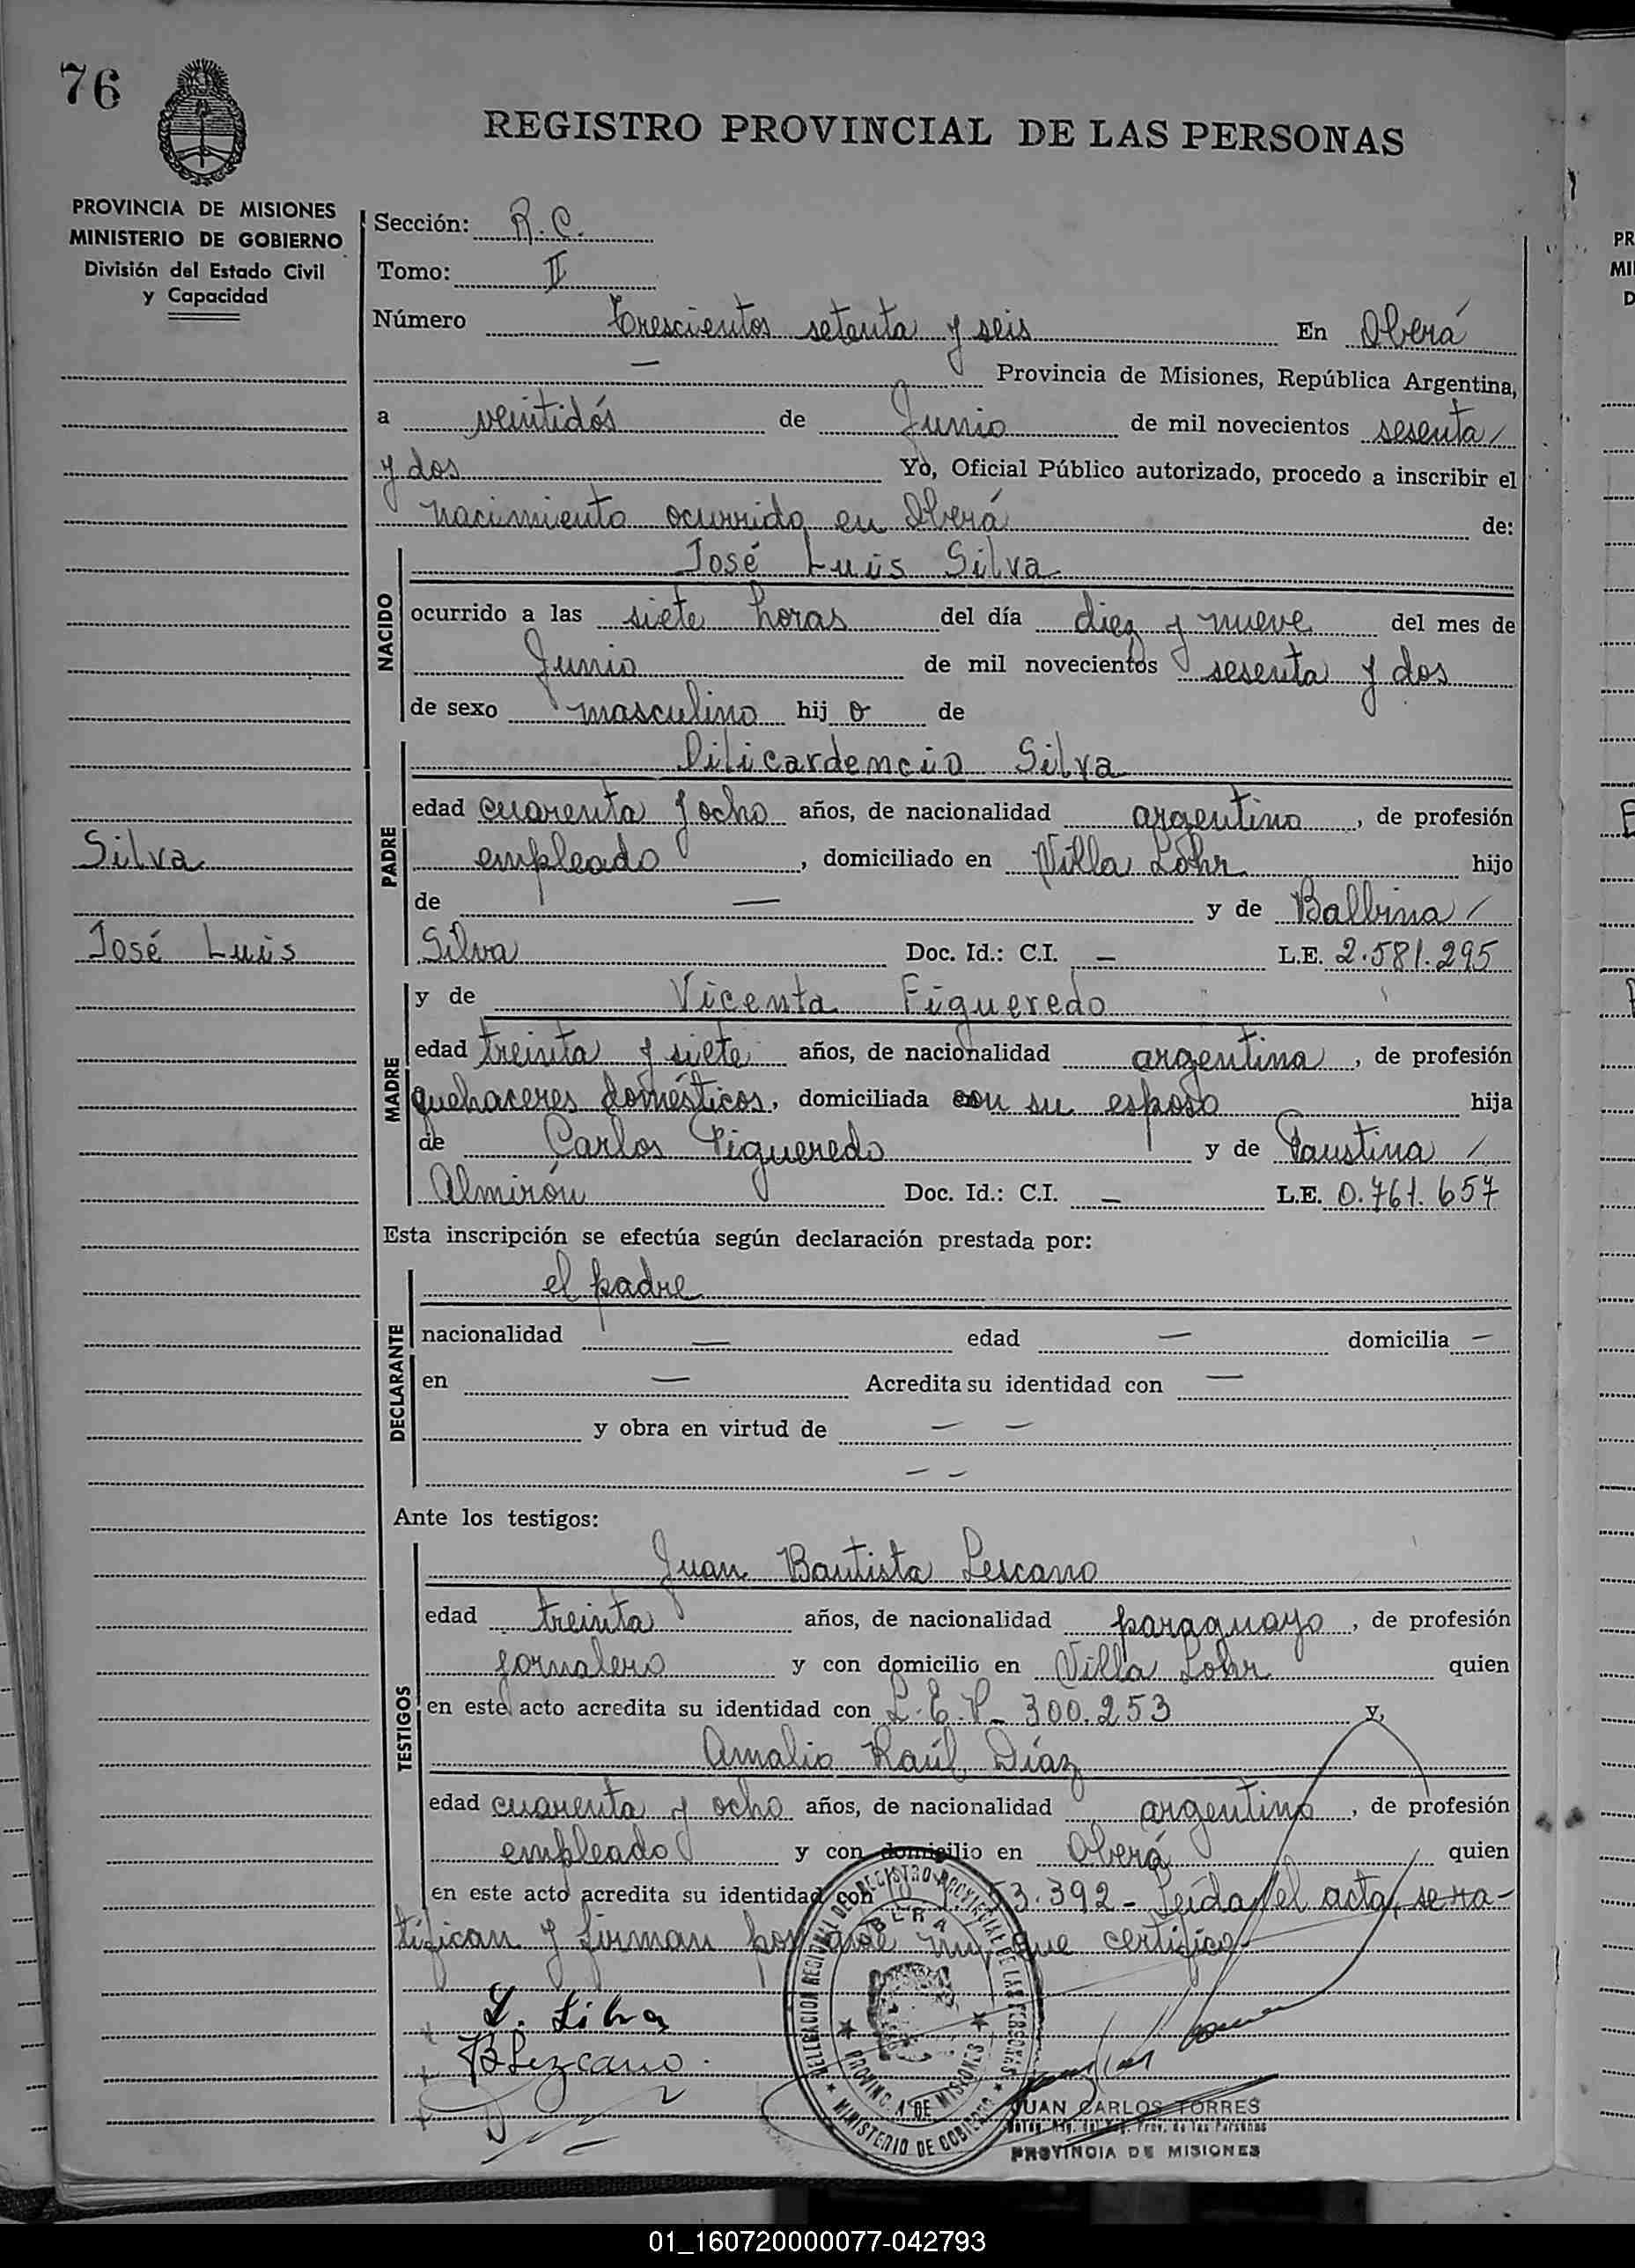 76
REGISTRO PROVINCIAL DE LAS PERSONAS
PROVINCIA DE MISIONES
MINISTERIO DE GOBIERNO
División del Estado Civil
y Capacidad
Silva
José Luis
Sección: R.C.
Tomo: II
Número Trescientos setenta y seis En Oberá
— Provincia de Misiones, República Argentina,
a veintidós de Junio de mil novecientos sesenta /
y dos Yo, Oficial Público autorizado, procedo a inscribir el
nacimiento ocurrido en Oberá de:
NACIDO
José Luis Silva
ocurrido a las siete horas del día diez y nueve del mes de
Junio de mil novecientos sesenta y dos
de sexo masculino hij o de
PADRE
Silva
edad cuarenta y ocho años, de nacionalidad argentino, de profesión
empleado, domiciliado en Villa Lohr hijo
de — y de Balbina /
Silva Doc. Id.: C.I. — L.E. 2.581.295
MADRE
y de Vicenta Figueredo
edad treinta y siete años, de nacionalidad argentina, de profesión
quehaceres domésticos, domiciliada con su esposo hija
de Carlos Figueredo y de Faustina /
Almirón Doc. Id.: C.I. — L.E. 0.761.657
Esta inscripción se efectúa según declaración prestada por:
DECLARANTE
el padre
nacionalidad — edad — domicilia —
en — Acredita su identidad con —
y obra en virtud de — —
— —
Ante los testigos:
TESTIGOS
Juan Bautista Lescano
edad treinta años, de nacionalidad paraguayo, de profesión
jornalero y con domicilio en Villa Lohr quien
en este acto acredita su identidad con L.E.P. 300.253 y,
Amalio Raúl Díaz
edad cuarenta y ocho años, de nacionalidad argentino, de profesión
empleado y con domicilio en Oberá quien
en este acto acredita su identidad con 3.392 - Leída el acta, se ra-
tifican y firman por ante mí, que certifico.-
L. Silva
B Lezcano.
DELEGACION REGIONAL DEL REGISTRO PROVINCIAL DE LAS PERSONAS
OBERA
PROVINCIA DE MISIONES
MINISTERIO DE GOBIERNO
JUAN CARLOS TORRES
PROVINCIA DE MISIONES
01_160720000077-042793